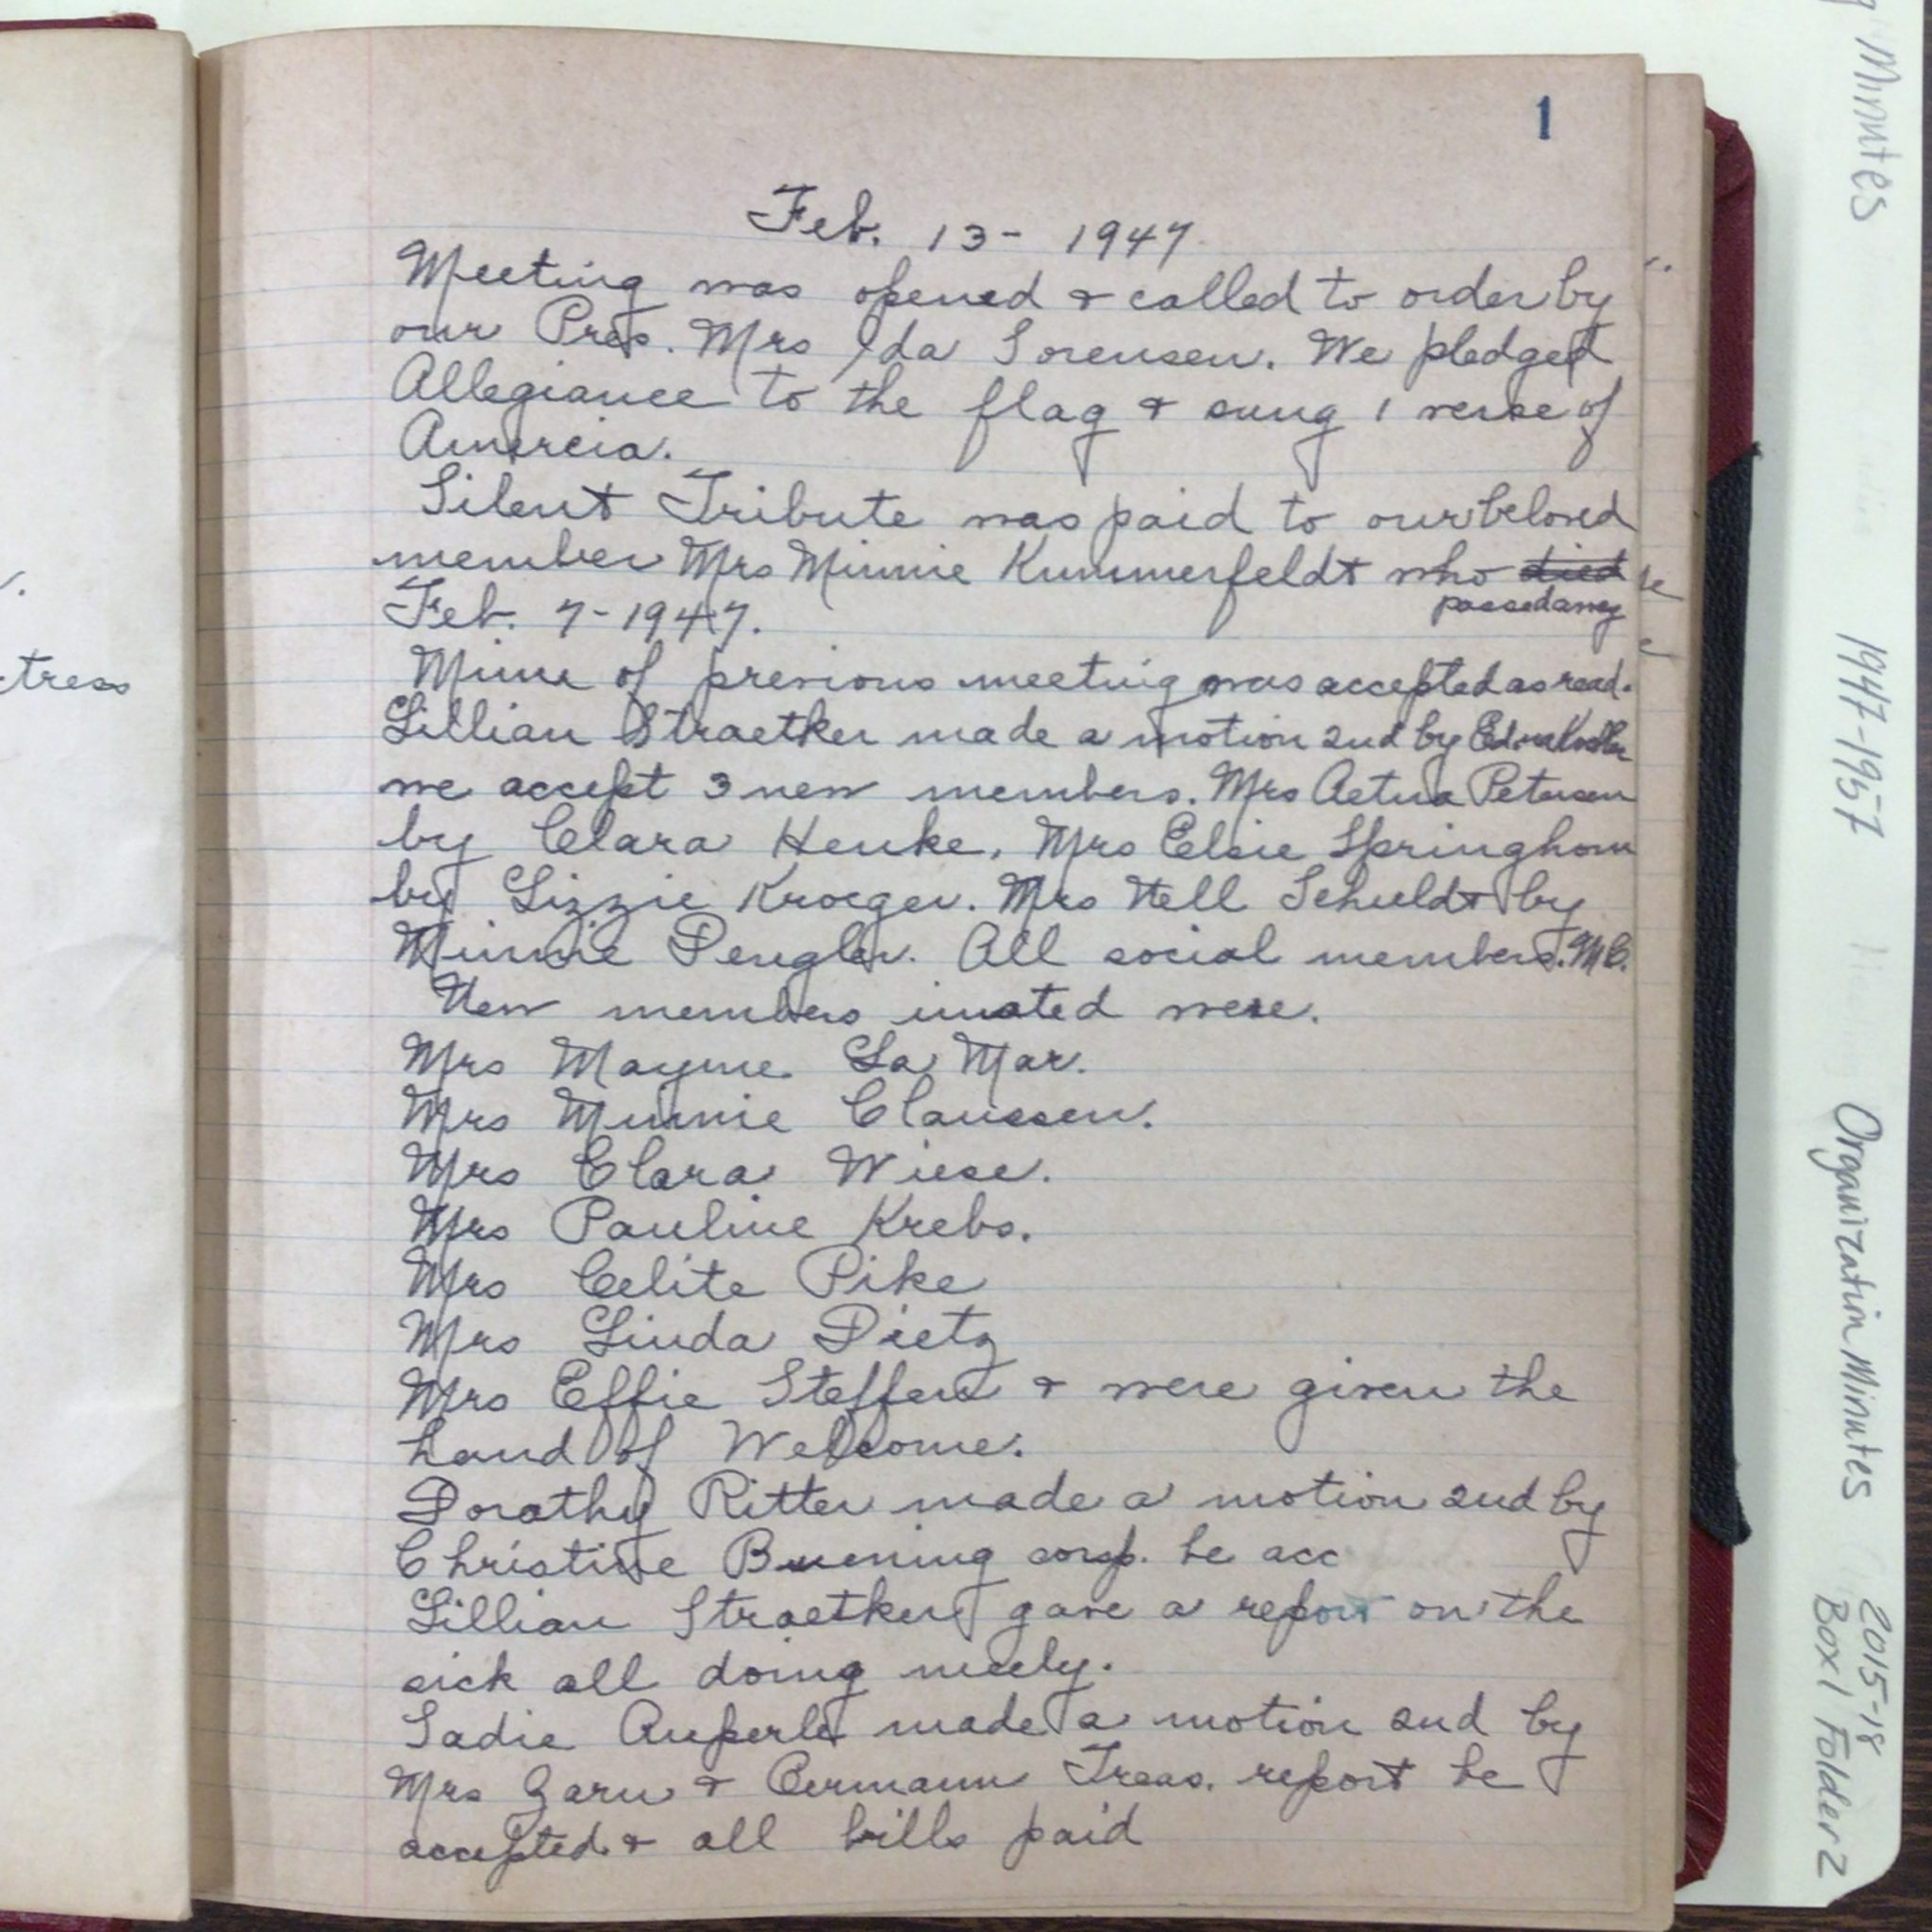 1
Feb. 13 - 1947
Meeting was opened & called to order by
our Pres. Mrs Ida Sorensen. We pledged
Allegiance to the flag & sung 1 verse of
Amercia.
Silent Tribute was paid to our beloved
member Mrs Minnie Kummerfeldt who died
passed away
Feb. 7 - 1947.
of previous meeting was accepted as read.
Lillian Straetker made a motion 2nd by Edna
we accept 3 new members. Mrs Aetna Petersen
by Clara Henke, Mrs Elsie Springhorn
by Lizzie Kroeger. Mrs Nell Schuldt by
Minnie Dengler. All social members. M.C.
New members were.
Mrs Mayme La Mar.
Mrs Minnie Claussen.
Mrs Clara Wiese.
Mrs Pauline Krebs.
Mrs Celite Pike
Mrs Linda Dietz
Mrs Effie Steffens & were given the
hand of Welcome.
Dorothy Ritter made a motion 2nd by
Christine Buening corsp. be acc
Lillian Straetker gave a report on the
sick all doing nicely.
Sadie Auperle made a motion 2nd by
Mrs Garn & Treas. report be
accepted & all bills paid
ctress
Minutes
1947-1957
Organization Minutes
2015-18
Box 1 Folder 2